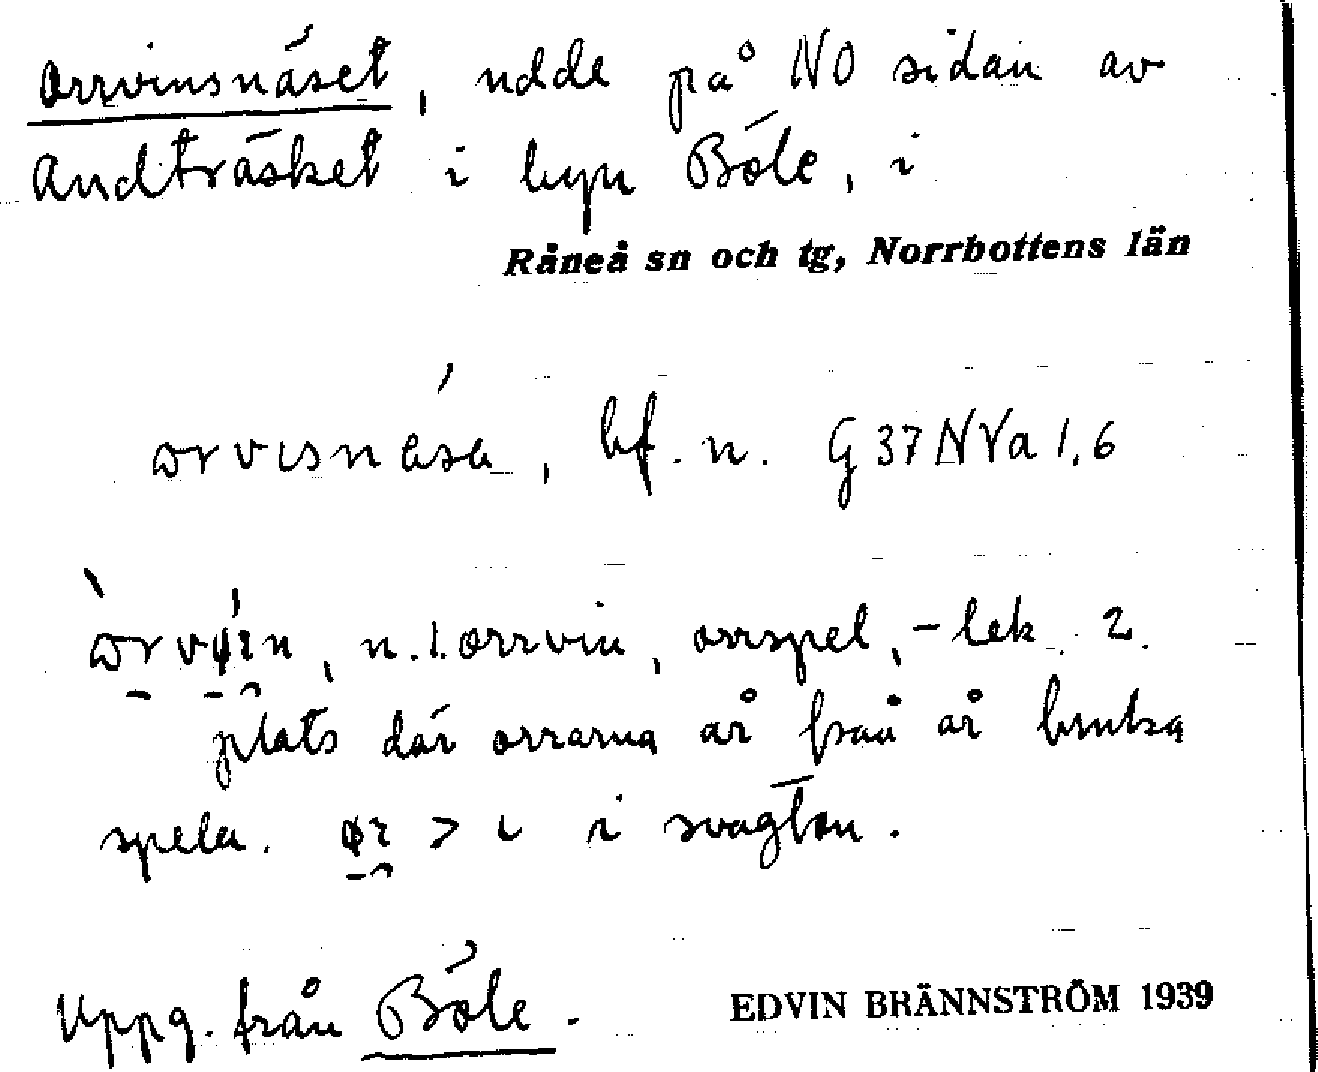 Orrvinsnäset, udde på NO sidan av
Andträsket i byn Böle, i
Råneå sn och tg, Norrbottens län
ɔrvɩsnása, bf. n. G37NVa 1,6
ɔ̀rvǿɩn, n. 1. orrvin, orrspel, -lek. 2.
plats där orrarna år från år bruka
spela. øɩ > ɩ i svagton.
Uppg. från Böle. EDVIN BRÄNNSTRÖM 1939